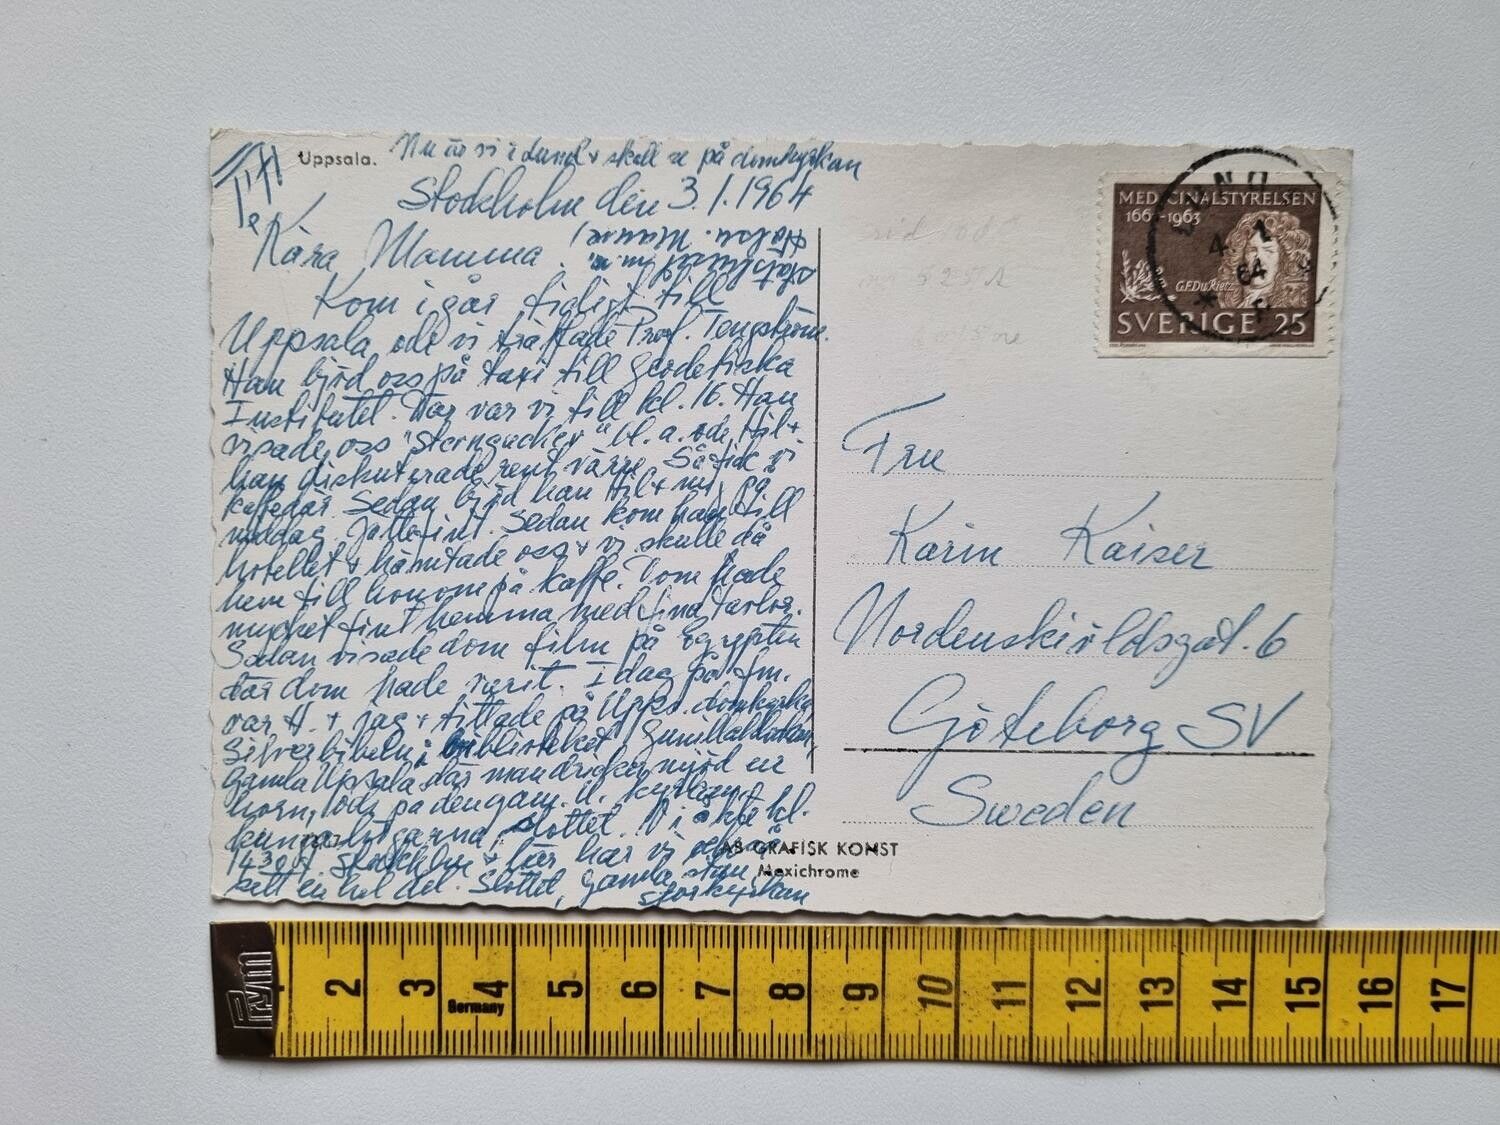 Uppsala.
Nu är vi i Lund + skall se på domkyrkan
Stockholm den 3.1.1964
Kära Mamma
Kom i går tidigt till
Uppsala, och vi träffade Prof. Tengström.
Han bjöd oss på taxi till Geodetiska
Institutet. Där var vi till kl. 16. Han
visade oss "Sterngucker" bl. a. och Hil +
han diskuterade rent värre. Så fick vi
kaffe där. Sedan bjöd han Hil + mig på
middag. Jättefint. Sedan kom han till
hotellet + hämtade oss + vi skulle då
hem till honom på kaffe. Dom hade
mycket fint hemma med fina tavlor.
Sedan visade dom film på Egypten
där dom hade varit. I dag på fm.
var H. + jag + tittade på Upps. domkyrka
Silverbibeln i biblioteket, Gunillaklockan,
Gamla Uppsala där man dricker mjöd ur
horn,
kungahögarna, slottet. Vi åkte kl.
1430 t. Stockholm + här har vi också
sett en hel del. Slottet, Gamla stan
storkyrkan
MEDICINALSTYRELSEN
1963
G.F.DuRietz
SVERIGE 25
LUND
4. 1
64
Fru
Karin Kaiser
Nordenskiöldsgat. 6
Göteborg SV
Sweden
AB GRAFISK KONST
Mexichrome
Prym
Germany
2 3 4 5 6 7 8 9 10 11 12 13 14 15 16 17